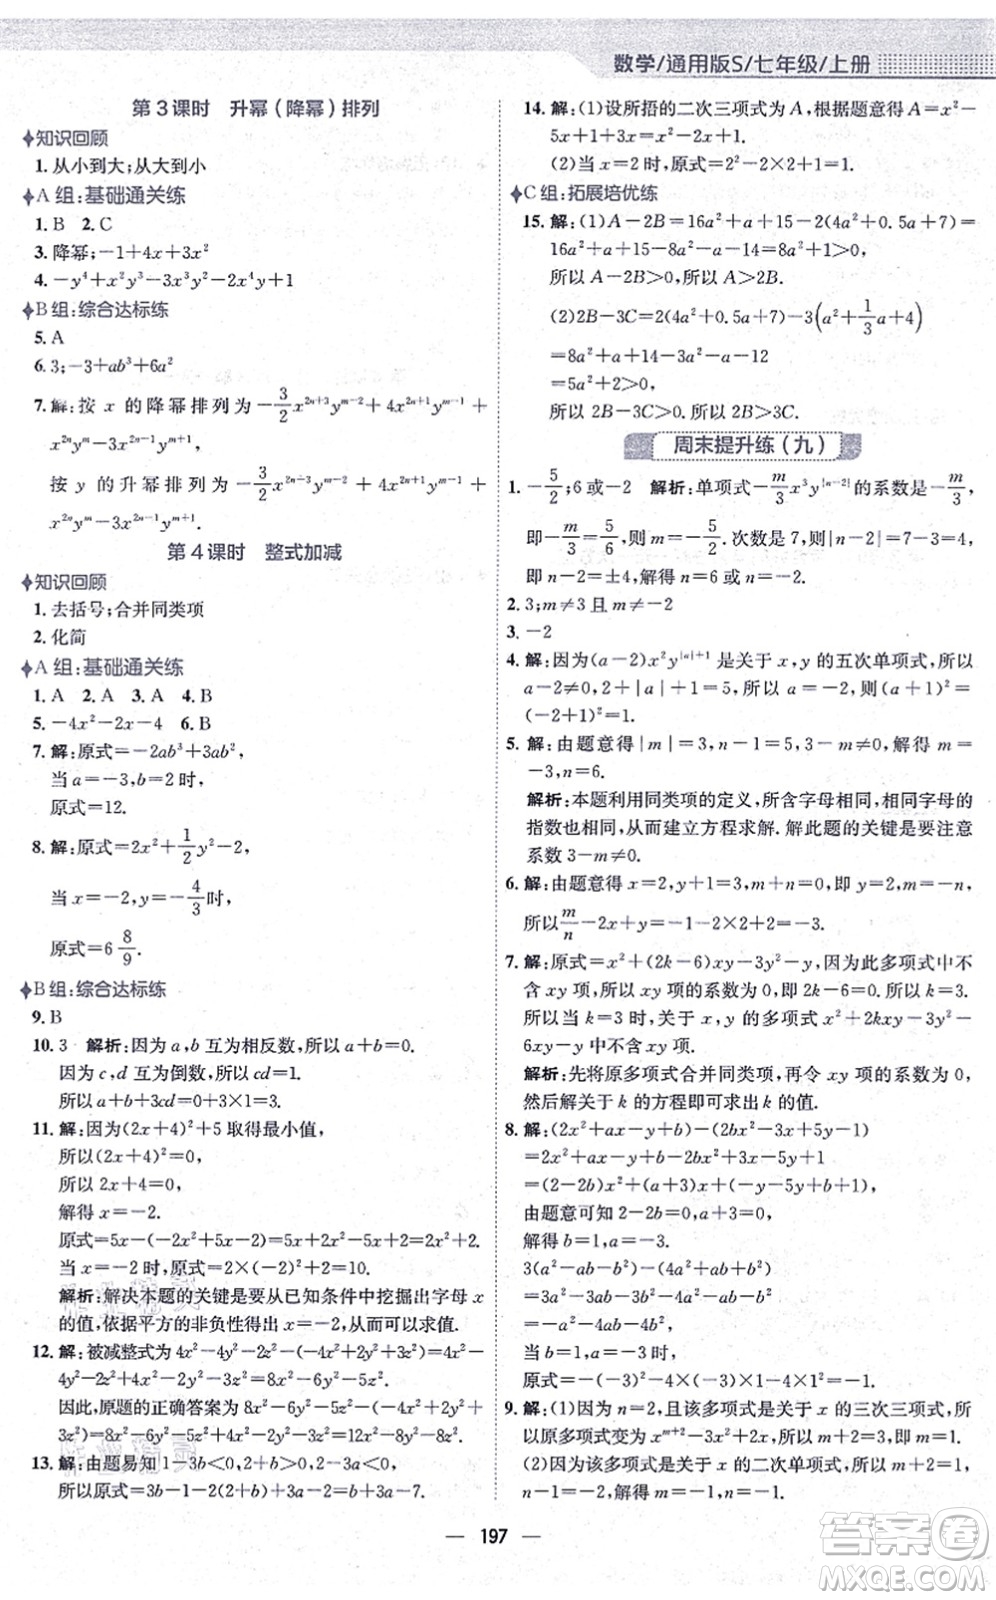 数学/通用版S/七年级/上册
第3课时 升幂(降幂)排列
知识回顾
1. 从小到大;从大到小
A 组:基础通关练
1. B 2. C
3. 降幂;-1+4x+3x²
4. -y⁴+x²y³-3x³y²-2x⁴y+1
B 组:综合达标练
5. A
6. 3;-7+ab³+6a²
7. 解:按 x 的降幂排列为 -3/2 x²ⁿ⁺³yᵐ⁻²+4x²ⁿ⁺¹yᵐ⁻¹+
x²ⁿyᵐ-3x²ⁿ⁻¹yᵐ⁺¹.
按 y 的升幂排列为 -3/2 x²ⁿ⁺³yᵐ⁻²+4x²ⁿ⁺¹yᵐ⁻¹+
x²ⁿyᵐ-3x²ⁿ⁻¹yᵐ⁺¹.
第4课时 整式加减
知识回顾
1. 去括号;合并同类项
2. 化简
A 组:基础通关练
1. A 2. A 3. A 4. B
5. -4x²-2x-4 6. B
7. 解:原式=-2ab³+3ab²,
当a=-3,b=2时,
原式=12.
8. 解:原式=2x²+1/2 y²-2,
当 x=-2,y=-4/3时,
原式=6 8/9.
B 组:综合达标练
9. B
10. 3 解析:因为a,b互为相反数,所以a+b=0.
因为c,d互为倒数,所以cd=1.
所以a+b+3cd=0+3×1=3.
11. 解:因为(2x+4)²+5取得最小值,
所以(2x+4)²=0.
所以2x+4=0.
解得x=-2.
原式=5x-(-2x²+5x-2)=5x+2x²-5x+2=2x²+2.
当x=-2时,原式=2×(-2)²+2=10.
解析:解决本题的关键是从已知条件中挖掘出字母x
的值,依据平方的非负性得出x=-2,从而使问题得解.
12. 解:被减整式为4x²-4y²-2z²-(-4x²+2y²)=4x²-
4y²-2z²+4x²-2y²=8x²-6y²-2z².
因此,原题的正确答案为8x²-6y²-2z²-(-4x²+2y²)
=8x²-6y²-2z²+4x²-2y²=12x²-8y²-2z².
13. 解:由题意易知1-b<0,2+a>0,a-4<0,
所以原式=3b-1-2(2+a)-(4-a)=3b-a-9.
14. 解:(1)设所捂的二次三项式为A,根据题意得A=x²-
5x+1+3x=x²-2x+1.
(2)当x=2时,原式=2²-2×2+1=1.
C 组:拓展培优练
15. 解:(1)A-2B=16a²+a+15-2(4a²+0.5a+7)=
16a²+a+15-8a²-a-14=8a²+1>0,
所以A-2B>0,
所以A>2B.
(2)2B-3C=2(4a²+0.5a+7)-3(a²+1/3 a+4)
=8a²+a+14-3a²-a-12
=5a²+2>0.
所以2B-3C>0.所以2B>3C.
周末提升练(九)
1. -5/2;6或-2 解析:单项式-m/3 x³y|ⁿ⁻²|的系数是-m/3,
即-m/3=5/6,则m=-5/2.次数是7,则|n-2|=7-3=4,
即n-2=±4,解得n=6或n=-2.
2. 3;m≠3且m≠-2
3. -2
4. 解:因为(a-2)x²y|ᵃ|⁺¹是关于x,y的五次单项式,所以
a-2≠0,2+|a|+1=5.所以a=-2.则(a+1)²=
(-2+1)²=1.
5. 解:由题意得|m|=3,n-1=5,3-m≠0.解得m=
-3,n=6.
解析:本题利用同类项的定义,所含字母相同,相同字母的
指数也相同,从而建立方程求解.解此题的关键是要注意
系数3-m≠0.
6. 解:由题意得x=2,y+1=3,m+n=0,即y=2,m=-n,
所以m/n-2x+y=-1-2×2+2=-3.
7. 解:原式=x²+(2k-6)xy-3y²-y,因为此多项式中不
含xy项,所以xy项的系数为0,即2k-6=0.解得k=3.
所以当k=3时,关于x,y的多项式x²+2kxy-3y²-
6xy-y中不含xy项.
解析:先将原多项式合并同类项,再令xy项的系数为0,
然后解关于k的方程即可求出k的值.
8. 解:(2x²+ax-y+b)-(2bx²-3x+5y-1)
=2x²+ax-y+b-2bx²+3x-5y+1
=(2-2b)x²+(a+3)x-6y+b+1,
由题意可知2-2b=0,a+3=0.
解得b=1,a=-3.
3(a²-ab-b²)-(4a²+ab+b²)
=3a²-3ab-3b²-4a²-ab-b²
=-a²-4ab-4b²,
当b=1,a=-3时,
原式=-(-3)²-4×(-3)×1-4×1²=-1.
9. 解:(1)因为n=2,且该多项式是关于x的三次三项式,所
以原多项式变为xᵐ⁺²+mx-3,所以m+2=3.所以m=1.
(2)因为该多项式是关于x的二次单项式,所以m+2=1,
n=2.所以m=-1,n=2.
197
答案圈
MXQE.COM